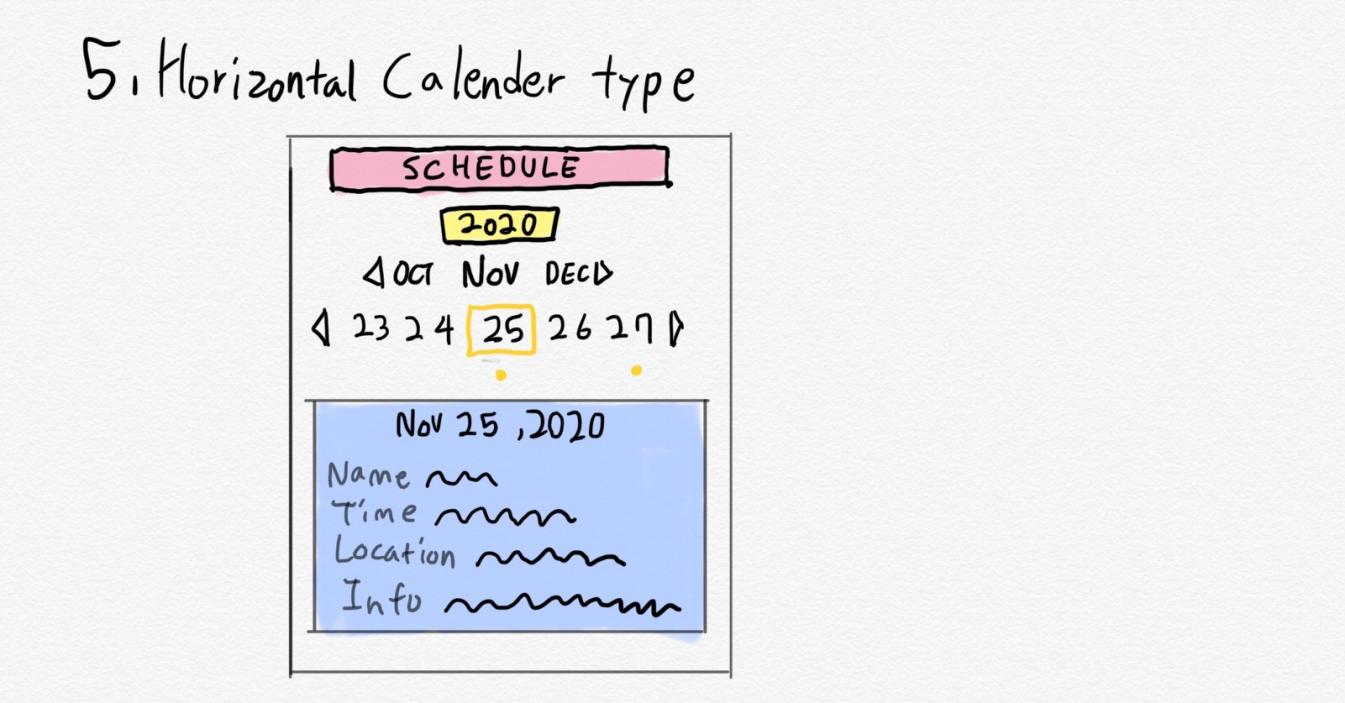 5. Horizontal Calender type
SCHEDULE
2020
OCT Nov DEC
23 24 25 26 27
Nov 25, 2020
Name
Time
Location
Info